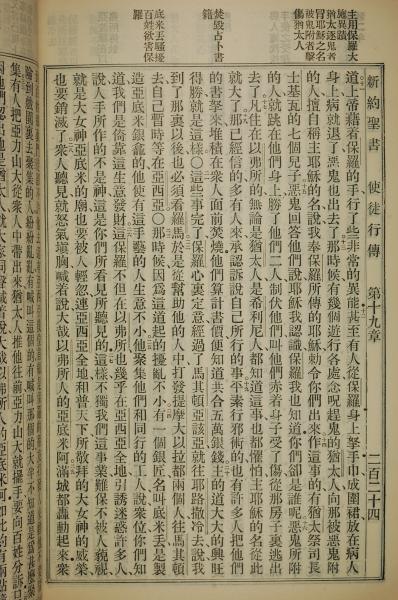 新約聖書 使徒行傳 第十九章 二百二十四
主用保羅大
施異蹟
猶太逐鬼者
冒耶穌之名
被鬼附者擊
傷猶太人
焚毀占卜書
籍
底米丟騷擾
百姓欲害保
羅
道上帝藉着保羅的手行了些非常的異能甚至有人從保羅身上拏手巾或圍裙放在病人
身上病就退了惡鬼也出去了那時候有幾個遊行各處念呪趕鬼的猶太人向那被惡鬼附
的人擅自稱主耶穌的名說我奉保羅所傳的耶穌勅令你們出來作這事的有猶太祭司長
士基瓦的七個兒子惡鬼回答他們說耶穌我認識保羅我也知道你們卻是誰呢惡鬼所附
的人就跳在他們身上勝了他們二人制伏他們叫他們赤着身子受了傷從那房子裏逃出
去了凡住在以弗所的無論是猶太人是希利尼人都知道這事也都懼怕主耶穌的名從此
就大了那已經信的多有人來承認訴說自己所行的事平素行邪術的也有許多人把他們
的書拏來堆積在衆人面前焚燒他們算計書價便知道共合五萬銀錢主的道大大的興旺
得勝就是這樣○這些事完了保羅心裏定意經過了馬其頓亞該亞就往耶路撒冷去說我
到了那裏以後也必須看羅馬於是從幫助他的人中打發提摩太以拉都兩個人往馬其頓
去自己暫時等在亞西亞○那時候因爲這道起的擾亂不小有一個銀匠名叫底米丟是製
造亞底米神銀龕的他使有這手藝的人生意不小他聚集他們和同行的工人說衆位你們知
道我們是倚靠這生意發財這保羅不但在以弗所也幾乎在亞西亞全地引誘迷惑許多人
說人手所作的不是神這是你們所看見所聽見的這樣不獨我們這事業難保不被人藐視
就是大女神亞底米的廟也要被人輕忽連亞西亞全地和普天下所敬拜的大女神的威榮
也要銷滅了衆人聽見就怒氣塡胸喊着說大哉以弗所人的亞底米阿滿城都轟動起來衆